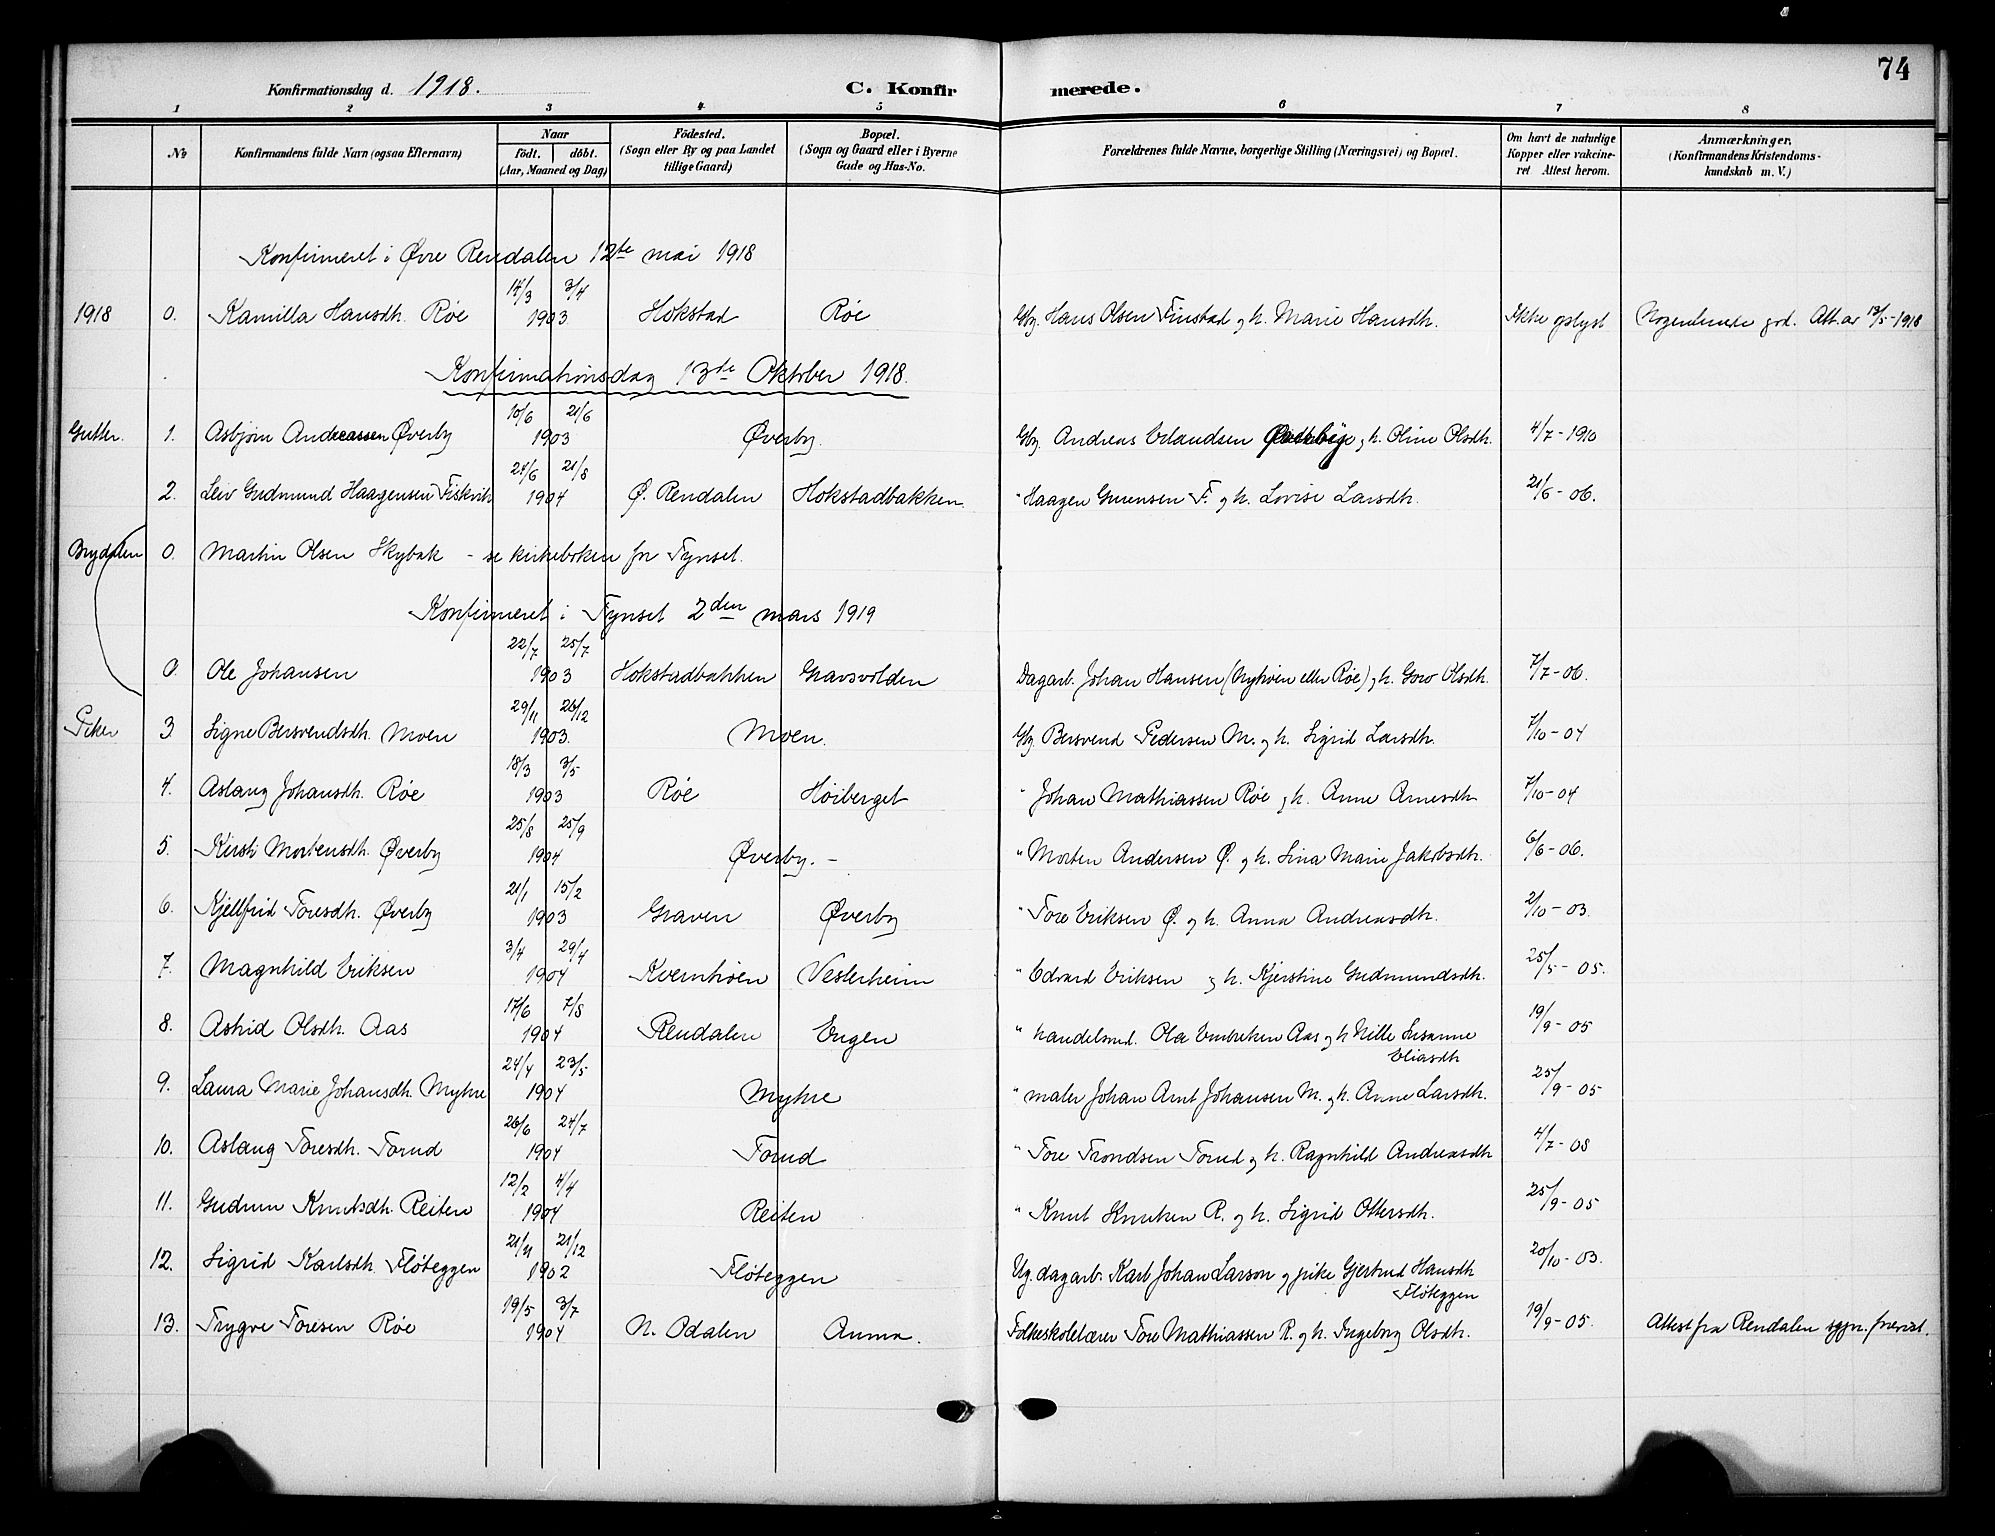 74
Konfirmationsdag d. 1918. C. Konfirmerede.
1 2 3 4 5 6 7 8
No Konfirmandens fulde Navn (ogsaa Efternavn) Naar födt. döbt. (Aar, Maaned og Dag) Födested. (Sogn eller By og paa Landet tillige Gaard) Bopæl. (Sogn og Gaard eller i Byerne Gade og Hus-No. Forældrenes fulde Navne, borgerlige Stilling (Næringsvei) og Bopæl. Om havt de naturlige Kopper eller vakcineret Attest herom. Anmærkninger, (Konfirmandens Kristendomskundskab m. V.)
Konfirmeret i Øvre Rendalen 12te mai 1918
1918 0. Kamilla Hansdh. Røe 14/3 3/4 1903 Hokstad Røe Gbr. Hans Olsen Finstad og h. Marie Hansdh. Ikke oplyst Nogenlunde god. Att. av 13/5-1918
Konfirmationsdag 13de Oktober 1918.
Gutter. 1. Asbjørn Andreassen Øverby 10/6 21/6 1903 Øverby. Gbr. Andreas Erlandsen og h. Oline Olsdh. 4/7-1910
2. Leiv Gudmund Haagensen Fiskvik 24/6 21/8 1904 Ø. Rendalen Hokstadbakken. " Haagen F. og h. Lovise Larsdh. 21/6-06.
Brydalen 0. Martin Olsen Skybak - se kirkeboken for Tynset.
Konfirmeret i Tynset 2den mars 1919
0. Ole Johansen 22/7 25/7 1903 Hokstadbakken Gravsvolden Dagarb. Johan Hansen (Nyhøen eller Røe) og h. Goro Olsdh. 7/7-06.
Piker 3. Signe Bersvendsdh. Moen 29/11 26/12 1903. Moen. Gbr. Bersvend Pedersen M. og h. Sigrid Larsdh. 7/10-04
4. Aslaug Johansdh. Røe 18/3 3/5 1903 Røe Høiberget " Johan Mathiassen Røe og h. Anne Arnesdh 7/10-04
5. Kirsti Mortensdh. Øverby 25/8 25/9 1904 Øverby. - " Morten Andersen Ø. og h. Lina Marie Jakobsdh. 6/6-06.
6. Kjellfrid Toresdh. Øverby 21/1 15/2 1903 Graven Øverby " Tore Eriksen Ø. og h. Anna Andreasdh. 2/10-03.
7. Magnhild Eriksen 3/4 29/4 1904 Kvernhøen Vesterheim " Edvard Eriksen og h. Kjerstine Gudmundsdh. 25/5-05.
8. Astrid Olsdh. Aas 17/6 7/8 1904 Rendalen Engen " handelsmd. Ola Embretsen Aas og h. Nille Susanne Eliasdh 19/9-05
9. Laura Marie Johansdh. Myhre 24/4 23/5 1904 Myhre " maler Johan Arnt Johansen M. og h. Anne Larsdh. 25/9-05
10. Aslaug Toresdh. Torud 26/6 24/7 1904 Torud " Tore Trondsen Torud og h. Ragnhild Andreasdh 4/7-08
11. Gudrun Knutsdh. Reiten 12/2 4/4 1904 Reiten " Knut Knutsen R. og h. Sigrid Ottersdh. 25/9-05
12. Sigrid Karlsdh. Fløteggen 21/11 21/12 1902 Fløteggen Ug. dagarb. Karl Johan Larson og pike Gjertrud Hansdh Fløteggen 20/10-03.
13. Trygve Toresen Røe 19/5 3/7 1904 N. Odalen Aurma. Folkeskolelærer Tore Mathiassen R. og h. Ingeborg Olsdh. 19/9-05. Attest fra Rendalen sgpr. forevist.